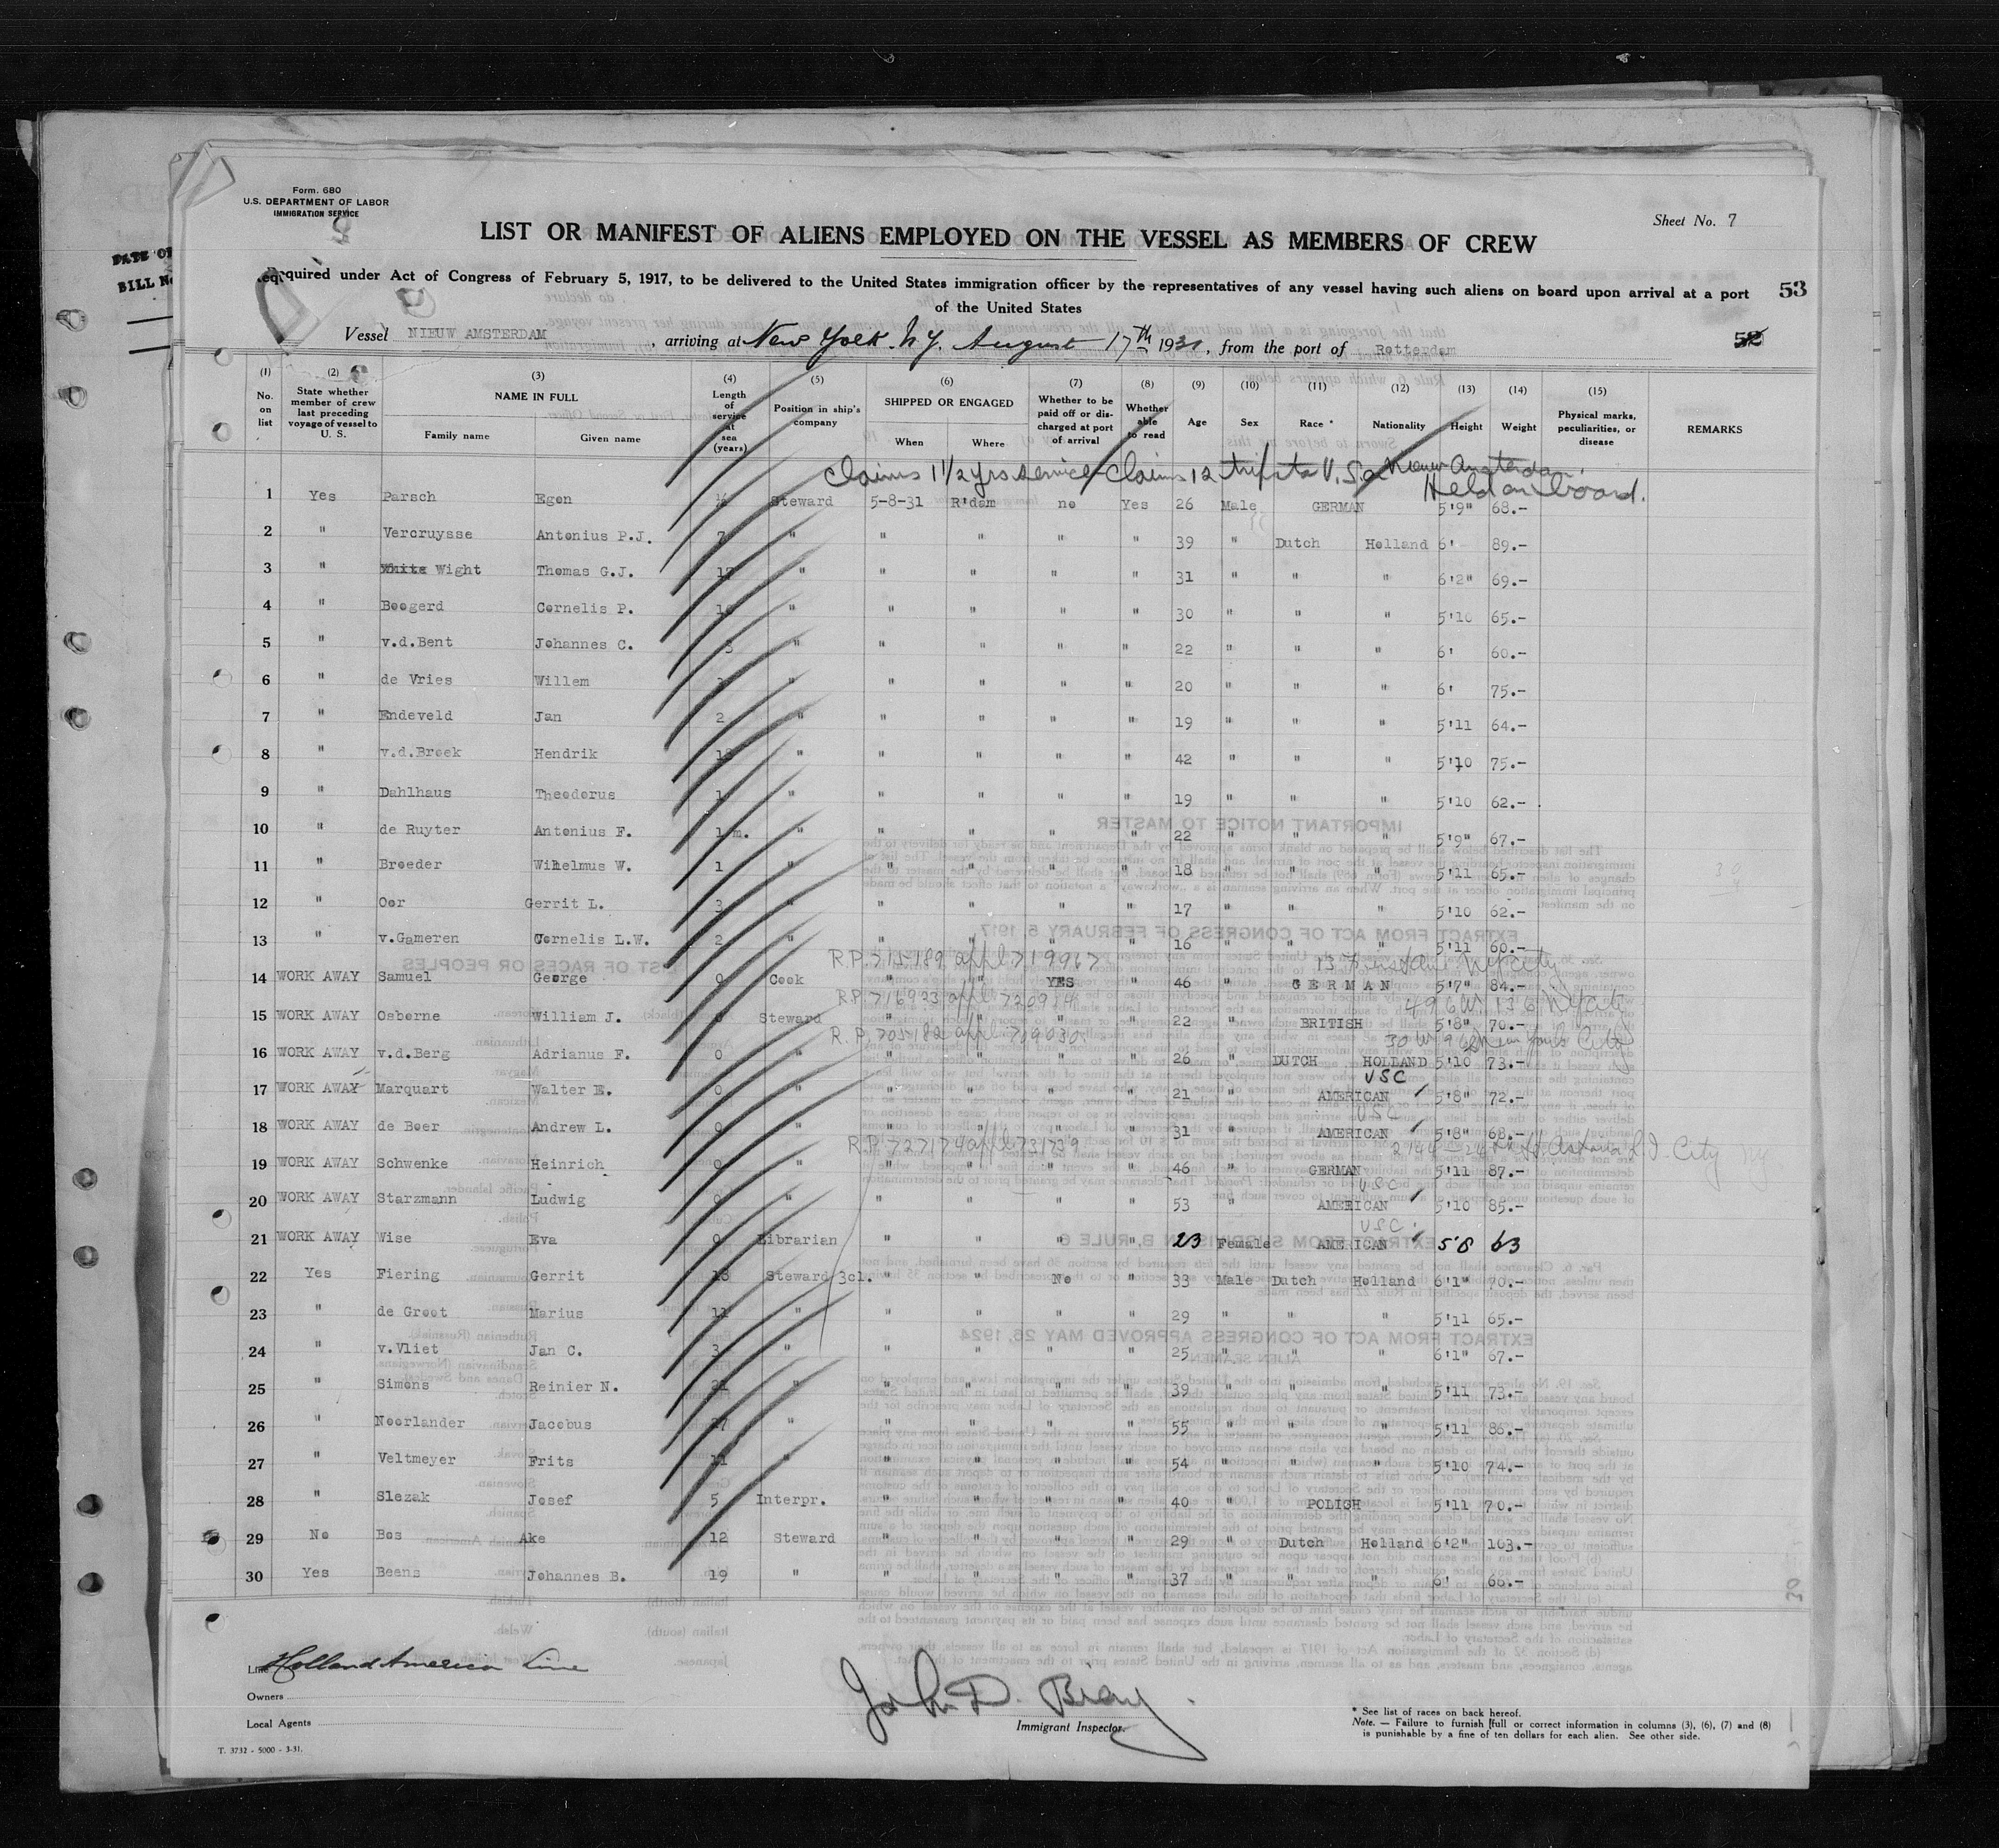 Form. 680
U.S. DEPARTMENT OF LABOR
IMMIGRATION SERVICE
Sheet No. 7
LIST OR MANIFEST OF ALIENS EMPLOYED ON THE VESSEL AS MEMBERS OF CREW
DATE OF
BILL No
Required under Act of Congress of February 5, 1917, to be delivered to the United States immigration officer by the representatives of any vessel having such aliens on board upon arrival at a port
of the United States
53
Vessel NIEUW AMSTERDAM, arriving at New York. N.Y. August 17th 1931, from the port of Rotterdam
52
(1) No. on list
(2) State whether member of crew last preceding voyage of vessel to U. S.
(3) NAME IN FULL Family name Given name
(4) Length of service at sea (years)
(5) Position in ship's company
(6) SHIPPED OR ENGAGED When Where
(7) Whether to be paid off or discharged at port of arrival
(8) Whether able to read
(9) Age
(10) Sex
(11) Race *
(12) Nationality
(13) Height
(14) Weight
(15) Physical marks, peculiarities, or disease
REMARKS
Claims 1 1/2 yrs service Claims 12 trips to U.S. on Nieuw Amsterdam.
Held on board.
1 Yes Parsch Egon ½ Steward 5-8-31 R'dam no Yes 26 Male GERMAN 5'9" 68.-
2 " Vercruysse Antonius P.J. 7 " " " " " 39 " Dutch Holland 6' 89.-
3 " White Wight Thomas G.J. 17 " " " " " 31 " " " 6'2" 69.-
4 " Boogerd Cornelis P. " " " " " 30 " " " 5'10 65.-
5 " v.d.Bent Johannes C. 3 " " " " " 22 " " " 6' 60.-
6 " de Vries Willem " " " " " 20 " " " 6' 75.-
7 " Endeveld Jan 2 " " " " " 19 " " " 5'11 64.-
8 " v.d.Broek Hendrik " " " " " 42 " " " 5'10 75.-
9 " Dahlhaus Theodorus 1 " " " " " 19 " " " 5'10 62.-
10 " de Ruyter Antonius F. 1 m. " " " " " 22 " " " 5'9" 67.-
11 " Broeder Wilhelmus W. 1 " " " " " 18 " " " 5'11 65.-
12 " Oor Gerrit L. 3 " " " " " 17 " " " 5'10 62.-
13 " v.Gameren Cornelis L.W. 2 " " " " " 16 " " " 5'11 60.-
R.P. 715189 appl 719967
14 WORK AWAY Samuel George 0 Cook " " YES " 46 " GERMAN 5'7" 84.-
R.P. 716933 appl 720984 496 W 136 NYCity
15 WORK AWAY Osborne William J. 0 Steward " " " " 22 " BRITISH 5'8" 70.-
R.P. 705182 appl 719030 30 W 96 New York City
16 WORK AWAY v.d.Berg Adrianus F. 0 " " " " " 26 " DUTCH HOLLAND 5'10 73.-
USC
17 WORK AWAY Marquart Walter E. 0 " " " " " 21 " AMERICAN 5'8" 72.-
USC
18 WORK AWAY de Boer Andrew L. 0 " " " " " 31 " AMERICAN 5'8" 68.-
R.P. 727174 appl 731739
19 WORK AWAY Schwenke Heinrich 0 " " " " " 46 " GERMAN 5'11 87.-
USC
20 WORK AWAY Starzmann Ludwig 0 " " " " " 53 " AMERICAN 5'10 85.-
USC.
21 WORK AWAY Wise Eva 0 Librarian " " " " 23 Female AMERICAN 5'8 63
22 Yes Fiering Gerrit 18 Steward 3cl. " " No " 33 Male Dutch Holland 6'1" 70.-
23 " de Groot Marius 11 " " " " " 29 " " " 5'11 65.-
24 " v.Vliet Jan C. 3 " " " " " 25 " " " 6'1" 67.-
25 " Simons Reinier N. 21 " " " " " 39 " " " 5'11 73.-
26 " Noorlander Jacobus 27 " " " " " 55 " " " 5'11 86.-
27 " Veltmeyer Frits 11 " " " " " 54 " " " 5'10 74.-
28 " Slezak Josef 5 Interpr. " " " " 40 " POLISH 5'11 70.-
29 No Bos Ake 12 Steward " " " " 29 " Dutch Holland 6'2" 103.-
30 Yes Beens Johannes B. 19 " " " " " 37 " " " 6' 66.-
Line Holland America Line
Owners
Local Agents
T. 3732 - 5000 - 3-31.
Immigrant Inspector.
* See list of races on back hereof.
Note. — Failure to furnish full or correct information in columns (3), (6), (7) and (8)
is punishable by a fine of ten dollars for each alien. See other side.